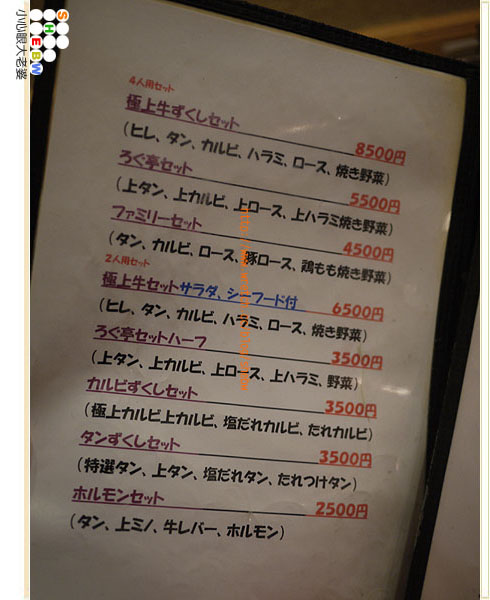 SHEBW
小心眼大老婆
4人用セット
極上牛ずくしセット 8500円
(ヒレ、タン、カルビ、ハラミ、ロース、焼き野菜)
ろぐ亭セット 5500円
(上タン、上カルビ、上ロース、上ハラミ焼き野菜)
ファミリーセット 4500円
(タン、カルビ、ロース、豚ロース、鶏もも焼き野菜)
2人用セット
極上牛セットサラダ、シーフード付 6500円
(ヒレ、タン、カルビ、ハラミ、ロース、焼き野菜)
ろぐ亭セットハーフ 3500円
(上タン、上カルビ、上ロース、上ハラミ、野菜)
カルビずくしセット 3500円
(極上カルビ上カルビ、塩だれカルビ、たれカルビ)
タンずくしセット 3500円
(特選タン、上タン、塩だれタン、たれつけタン)
ホルモンセット 2500円
(タン、上ミノ、牛レバー、ホルモン)